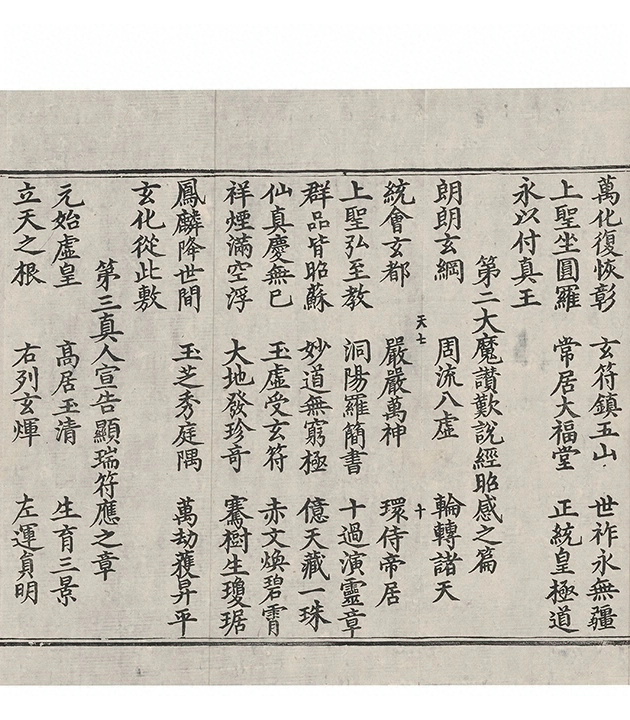 萬化復恢彰　玄符鎮五山　世祚永無疆
上聖坐圓羅　常居大福堂　正統皇極道
永以付真王
第二大魔讃歎說經昭感之篇
朗朗玄綱　周流八虛　輪轉諸天
統會玄都　嚴嚴萬神　環侍帝居
天七　十
上聖弘至教　洞陽羅簡書　十過演靈章
群品皆昭蘇　妙道無窮極　億天藏一珠
仙真慶無已　玉虛受玄符　赤文煥碧霄
祥煙滿空浮　大地發珍奇　騫樹生瓊琚
鳳麟降世間　玉芝秀庭隅　萬劫獲昇平
玄化從此敷
第三真人宣告顯瑞符應之章
元始虛皇　高居玉清　生育三景
立天之根　右列玄煇　左運貞明